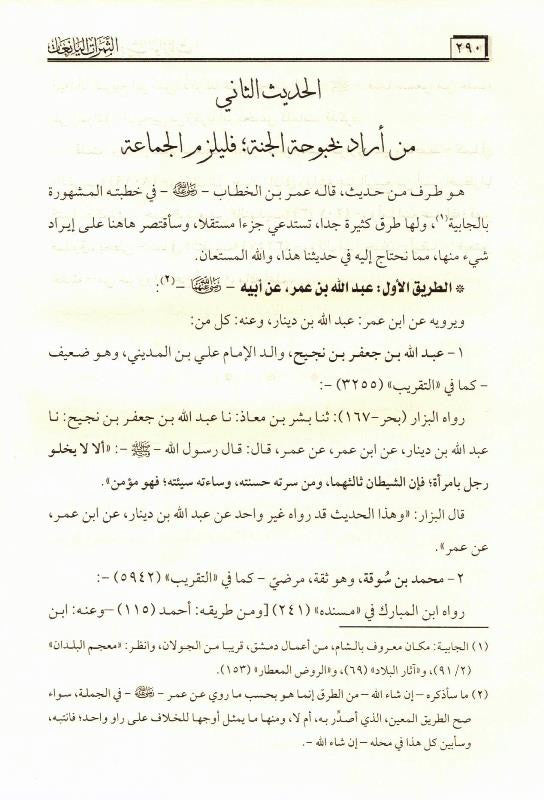 ٢٩٠
الثمرات اليانعات
الحديث الثاني
من أراد بحبوحة الجنة؛ فليلزم الجماعة
هو طرف من حديث، قاله عمر بن الخطاب – رضي الله عنه – في خطبته المشهورة
بالجابية(١)، ولها طرق كثيرة جدا، تستدعي جزءا مستقلا، وسأقتصر هاهنا على إيراد
شيء منها، مما نحتاج إليه في حديثنا هذا، والله المستعان.
* الطريق الأول: عبد الله بن عمر، عن أبيه – رضي الله عنهما –(٢):
ويرويه عن ابن عمر: عبد الله بن دينار، وعنه: كل من:
١- عبد الله بن جعفر بن نجيح، والد الإمام علي بن المديني، وهو ضعيف
– كما في «التقريب» (٣٢٥٥) –:
رواه البزار (بحر-١٦٧): ثنا بشر بن معاذ: نا عبد الله بن جعفر بن نجيح: نا
عبد الله بن دينار، عن ابن عمر، عن عمر، قال: قال رسول الله – ﷺ –: «ألا لا يخلو
رجل بامرأة؛ فإن الشيطان ثالثهما، ومن سرته حسنته، وساءته سيئته؛ فهو مؤمن».
قال البزار: «وهذا الحديث قد رواه غير واحد عن عبد الله بن دينار، عن ابن عمر،
عن عمر».
٢- محمد بن سُوقة، وهو ثقة، مرضيّ – كما في «التقريب» (٥٩٤٢) –:
رواه ابن المبارك في «مسنده» (٢٤١) [ومن طريقه: أحمد (١١٥) –وعنه: ابن
(١) الجابية: مكان معروف بالشام، من أعمال دمشق، قريبا من الجولان، وانظر: «معجم البلدان»
(٢/ ٩١)، و«آثار البلاد» (٦٩)، و«الروض المعطار» (١٥٣).
(٢) ما سأذكره – إن شاء الله – من الطرق إنما هو بحسب ما روي عن عمر – رضي الله عنه – في الجملة، سواء
صح الطريق المعين، الذي أصدِّر به، أم لا، ومنها ما يمثل أوجها للخلاف على راو واحد؛ فانتبه،
وسأبين كل هذا في محله – إن شاء الله –.